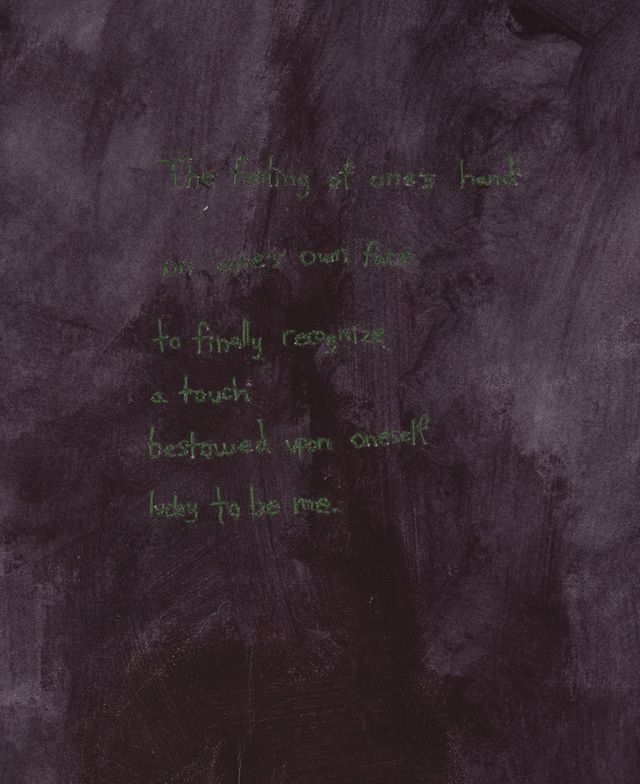 The feeling of one's hand
on one's own face
to finally recognize
a touch
bestowed upon oneself
lucky to be me.